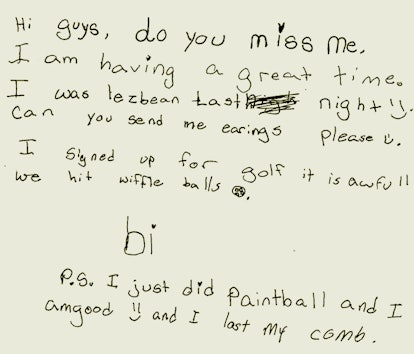 Hi guys, do you miss me.
I am having a great time.
I was lezbean Last night :).
Can you send me earings please :).
I signed up for golf it is awfull
we hit wiffle balls ☹.
bi
P.S. I just did Paintball and I
amgood :) and I last my comb.